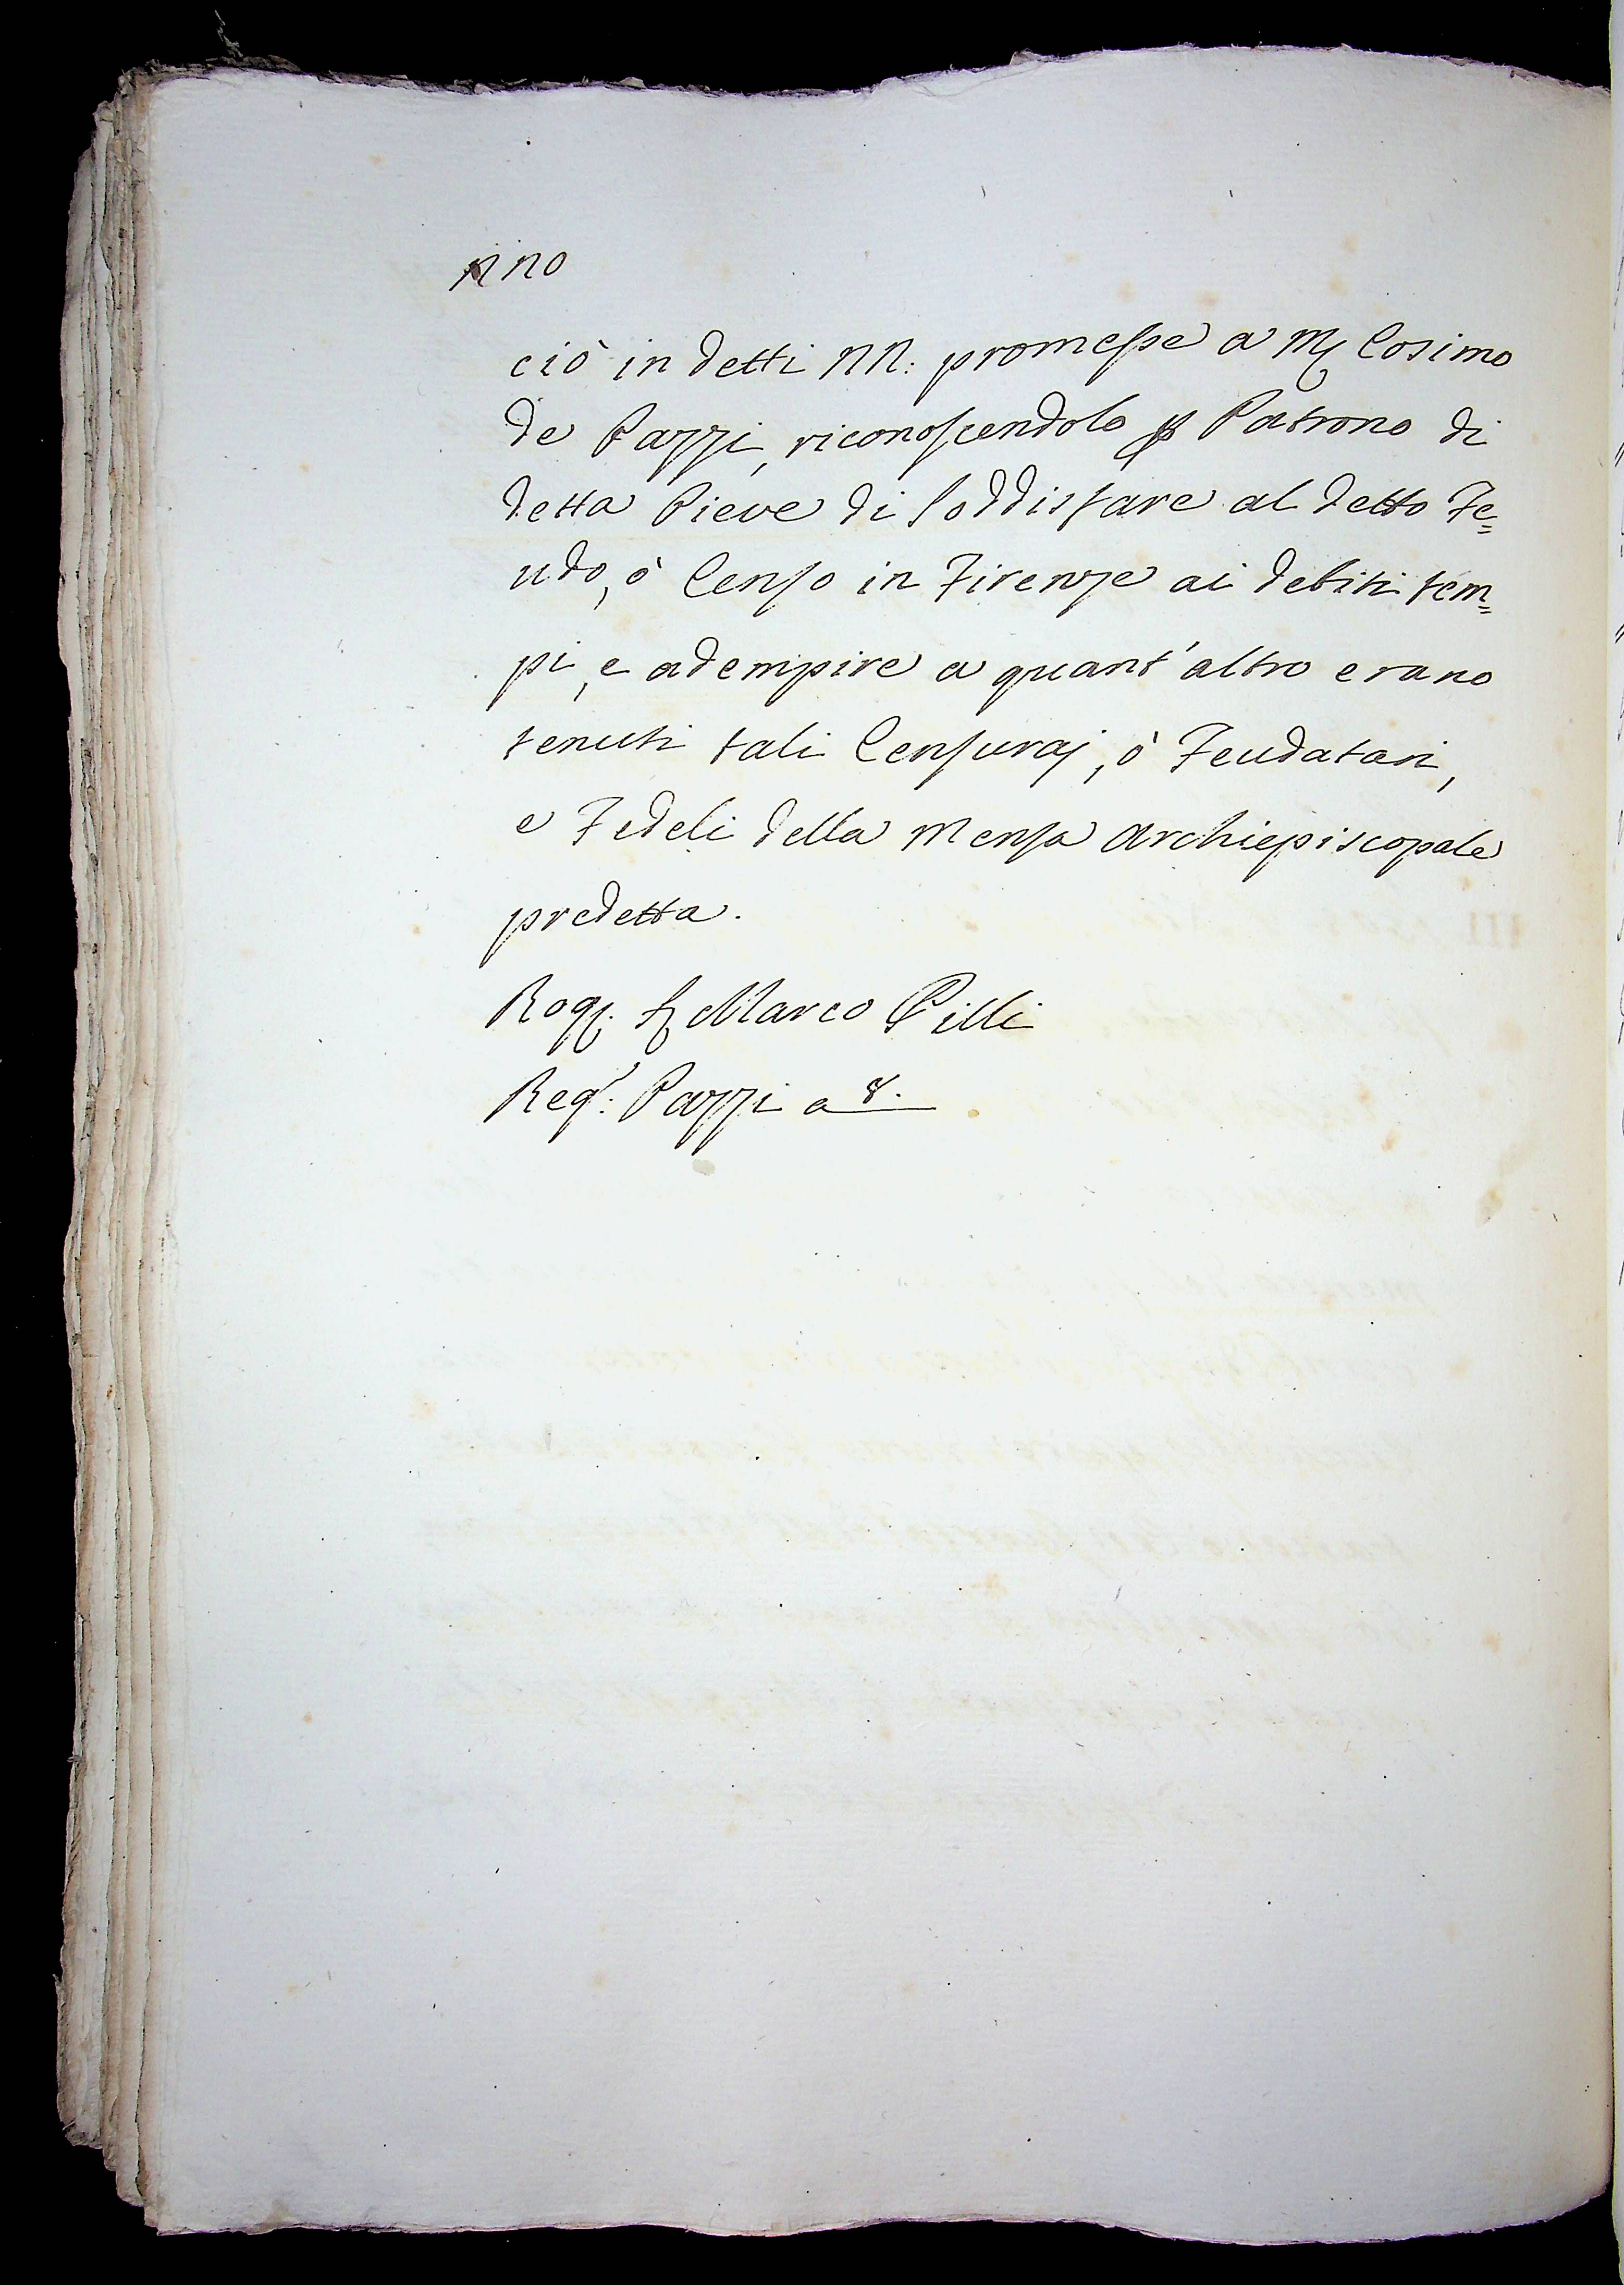 nno
ciò in detti NN: promesse a M Cosimo
de Pazzi, riconoscendolo p Patrono di
detta Pieve di soddisfare al detto Fe=
udo, ò Censo in Firenze ai debiti tem=
pi, e adempire a quant'altro erano
tenuti tali Censuraj, ò Feudatari,
e Fedeli della Mensa Archiepiscopale
predetta.
Rog. S Marco Pilli
Reg.º: Pazzi a 8.